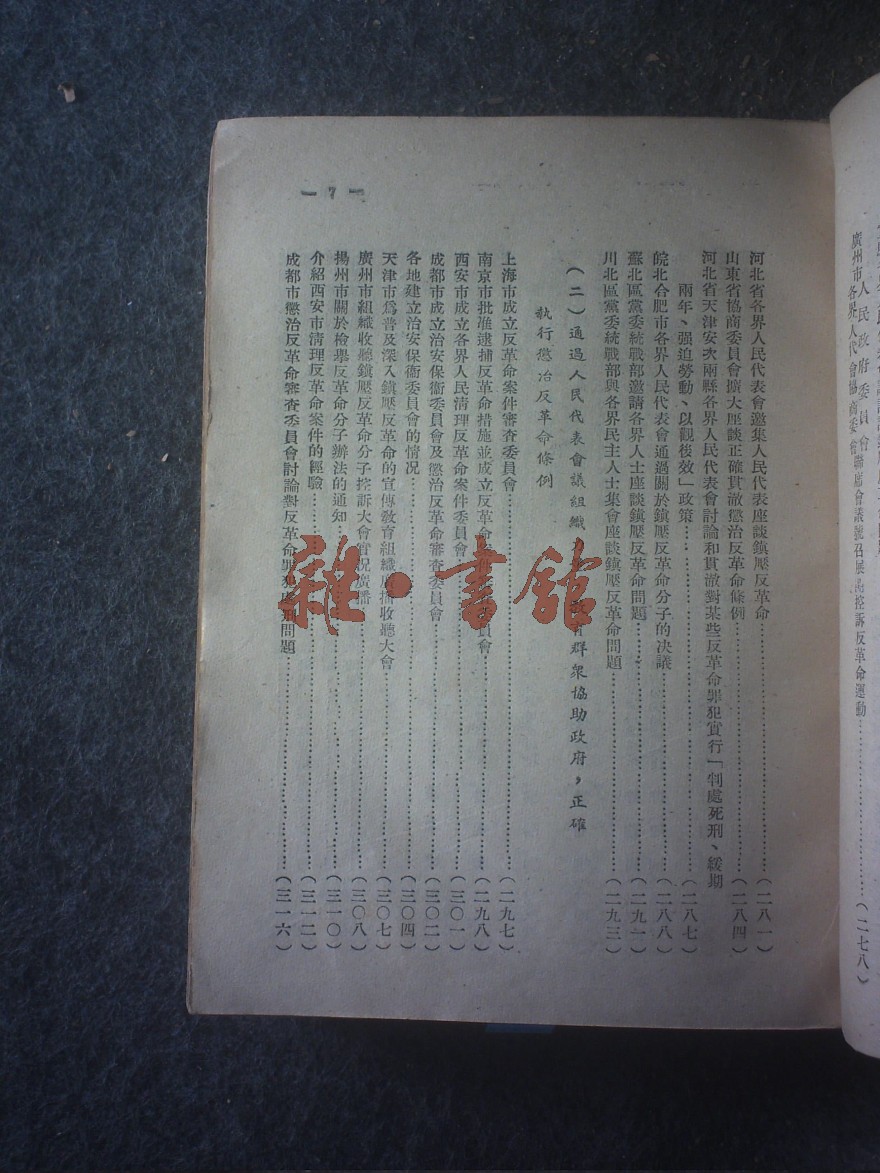 廣州市人民政府委員會聯席會議號召展開控訴反革命運動……(二七八)
廣州市各界人民代表會協商委員會
— 7 —
河北省各界人民代表會邀集人民代表座談鎮壓反革命……(二八一)
山東省協商委員會擴大座談正確貫澈懲治反革命條例……(二八四)
河北省天津安次兩縣各界人民代表會討論和貫澈對某些反革命罪犯實行「判處死刑、緩期
兩年、强迫勞動、以觀後效」政策……(二八七)
皖北合肥市各界人民代表會通過關於鎮壓反革命分子的决議……(二八八)
蘇北區黨委統戰部邀請各界人士座談鎮壓反革命問題……(二九一)
川北區黨委統戰部與各界民主人士集會座談鎮壓反革命問題……(二九三)
(二)通過人民代表會議組織 教育群衆協助政府,正確
執行懲治反革命條例
上海市成立反革命案件審查委員會……(二九七)
南京市批准逮捕反革命措施並成立反革命 件 委員會……(二九八)
西安市成立各界人民清理反革命案件委員會……(三〇一)
成都市成立治安保衞委員會及懲治反革命審查委員會……(三〇二)
各地建立治安保衞委員會的情况……(三〇四)
天津市爲普及深入鎮壓反革命的宣傳教育組織廣播收聽大會……(三〇七)
廣州市組織收聽鎮壓反革命分子控訴大會實况廣播……(三〇八)
揚州市關於檢舉反革命分子辦法的通知……(三一〇)
介紹西安市清理反革命案件的經驗……(三一二)
成都市懲治反革命審查委員會討論對反革命罪犯處刑問題……(三一六)
雜·書館